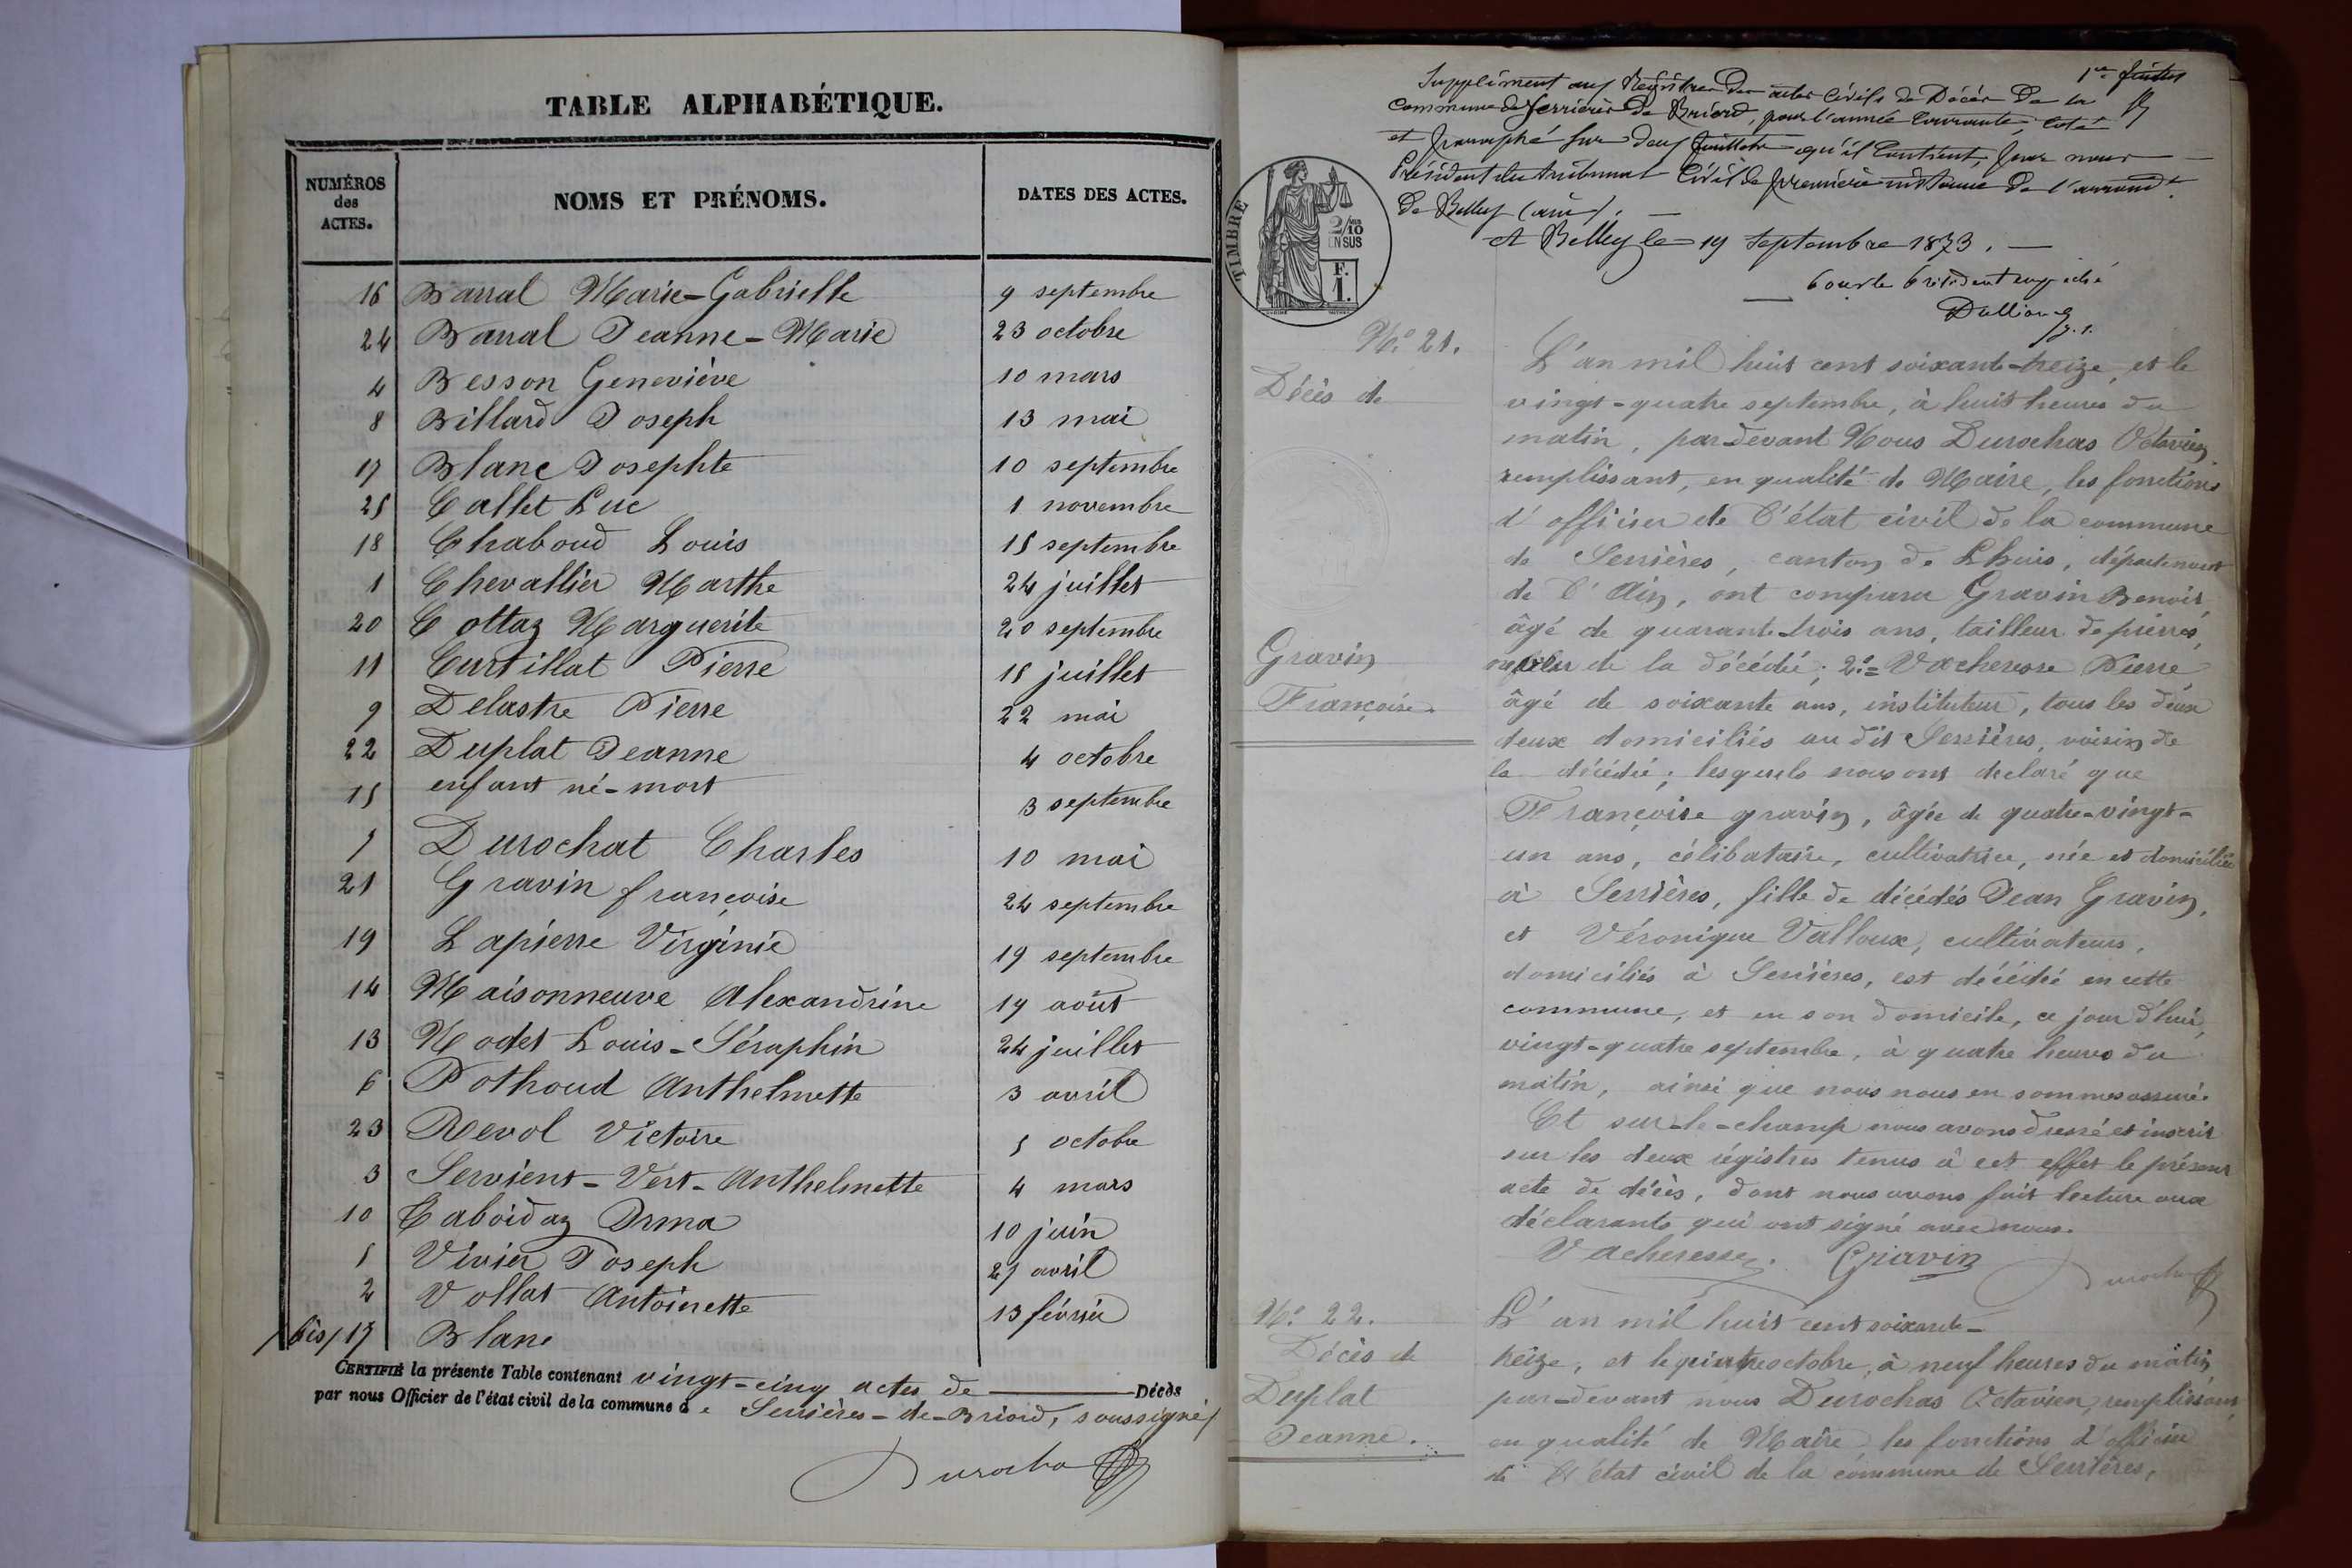 TABLE ALPHABÉTIQUE.
NUMÉROS des ACTES.
NOMS ET PRÉNOMS.
DATES DES ACTES.
16 Barral Marie-Gabrielle 9 septembre
24 Barral Jeanne-Marie 23 octobre
4 Besson Geneviève 10 mars
8 Billard Joseph 13 mai
17 Blanc Josephte 10 septembre
25 Callet Luc 1 novembre
18 Chaboud Louis 15 septembre
1 Chevallier Marthe 24 juillet
20 Cottaz Marguerite 20 septembre
11 Curtillat Pierre 15 juillet
9 Delastre Pierre 22 mai
22 Duplat Jeanne 4 octobre
15 enfant né-mort 3 septembre
7 Durochat Charles 10 mai
21 Gravin françoise 24 septembre
19 Lapierre Virginie 19 septembre
14 Maisonneuve Alexandrine 19 août
13 Modet Louis-Séraphin 24 juillet
6 Pothoud Anthelmette 3 avril
23 Revol Victoire 5 octobre
3 Servient-Vert-Anthelmette 4 mars
10 Taboidaz Irma 10 juin
5 Vivier Joseph 27 avril
2 Vollat Antoinette 13 février
bis 17 Blanc
CERTIFIÉ la présente Table contenant vingt-cinq actes de Décès
par nous Officier de l'état civil de la commune de Serrières-de-Briord, soussigné
Durochat
1er feuillet
Supplément aux Registres des actes Civils de Décès de la
commune de Serrières de Briord, pour l'année courante, coté
et paraphé sur deux feuillets qu'il contient, par nous
Président du tribunal Civil de première instance de l'arrondt
de Belley (ain).
A Belley le 19 Septembre 1873.
Pour le Président empêché
TIMBRE
2/10 EN SUS
F. 1.
N.° 21.
Décès de
Gravin
Françoise.
L'an mil huit cent soixante-treize, et le
vingt-quatre septembre, à huit heures du
matin, pardevant Nous Durochas Octavien
remplissant, en qualité de Maire, les fonctions
d'officier de l'état civil de la commune
de Serrières, canton de Lhuis, département
de l'Ain, ont comparu Gravin Benoit,
âgé de quarante-trois ans, tailleur de pierres,
neveu de la décédée; 2.°= Vacheresse Pierre
âgé de soixante ans, instituteur, tous les deux
deux domiciliés au dit Serrières, voisin de
la décédée; lesquels nous ont declaré que
Françoise gravin, âgée de quatre-vingt-
un ans, célibataire, cultivatrice, née et domiciliée
à Serrières, fille de décédés Jean Gravin,
et Véronique Valloux, cultivateurs,
domiciliés à Serrières, est décédée en cette
commune, et en son domicile, ce jour d'hui,
vingt-quatre septembre, à quatre heures du
matin, ainsi que nous nous en sommes assuré.
Et sur-le-champ nous avons dressé et inscrit
sur les deux régistres tenus à cet effet le présent
acte de décès, dont nous avons fait lecture aux
déclarants qui ont signé avec nous.
Vacheresse. Gravin Durochat
N.° 22.
Décès de
Duplat
Jeanne.
L'an mil huit cent soixante-
treize, et le quatre octobre, à neuf heures du matin,
par-devant nous Durochas Octavien, remplissant,
en qualité de Maire les fonctions d'officier
de l'état civil de la commune de Serrières,